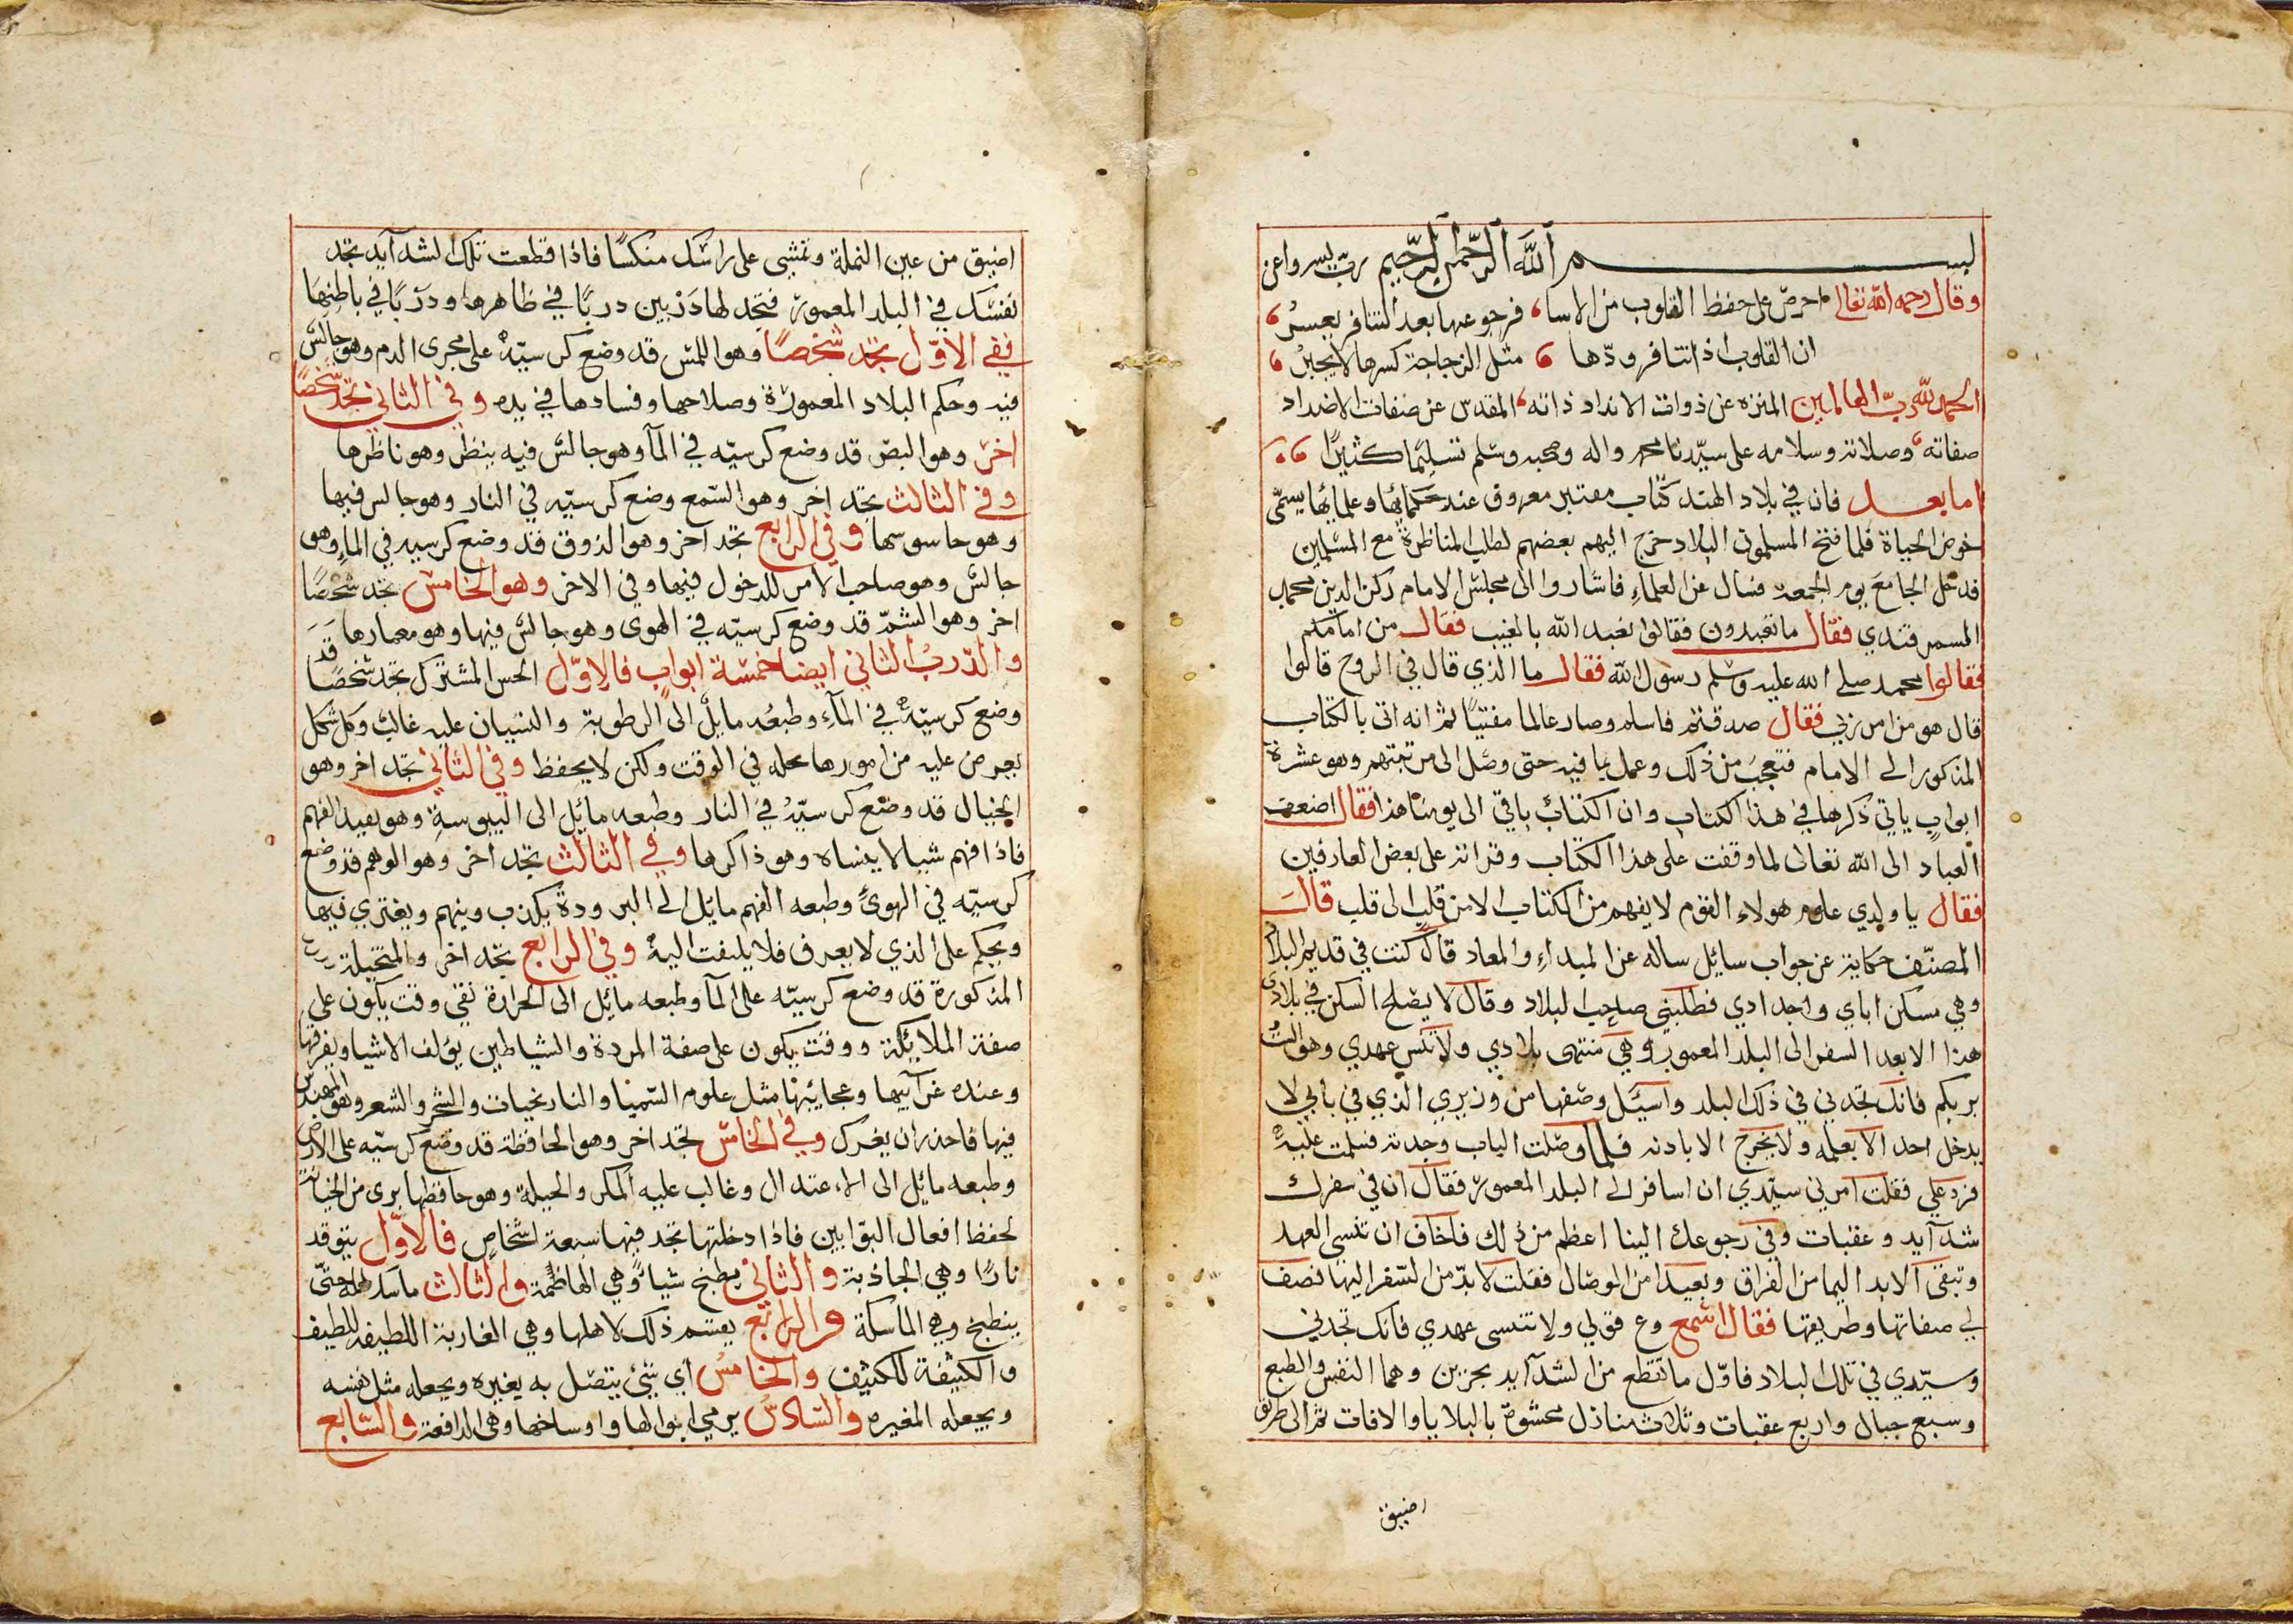 بسم الله الرحمن الرحيم رب يسر واعن
وقال رحمه الله تعالى احرص على حفظ القلوب من الاسا، فرجوعها بعد التنافر يعسر،
ان القلوب اذ انتافر ودها، مثل الزجاجة كسرها لا يجبر،
الحمد لله رب العالمين المنزه عن ذوات الانداد ذاته، المقدس عن صفات الاضداد
صفاته، وصلاته وسلامه على سيدنا محمد واله وصحبه وسلم تسليما كثيرا
اما بعد فان في بلاد الهند كتاب معتبر معروف عند حكمائها وعلمائها يسمى
حوض الحياة فلما فتح المسلمون البلاد خرج اليهم بعضهم لطلب المناظرة مع المسلمين
فدخل الجامع يوم الجمعة فسال عن العلماء فاشاروا الى مجلس الامام ركن الدين محمد
السمرقندي فقال ما تعبدون فقالوا نعبد الله بالغيب فقال من امامكم
فقالوا محمد صلى الله عليه وسلم رسول الله فقال ما الذي قال في الروح قالوا
قال هو من امر ربي فقال صدقتم فاسلم وصار عالما مفتيا ثم انه اتى بالكتاب
المذكور الى الامام فتعجب من ذلك وعمل بما فيه حتى وصل الى مرتبتهم وهو عشرة
ابواب ياتي ذكرها في هذا الكتاب وان الكتاب باقي الى يومنا هذا فقال اضعف
العباد الى الله تعالى لما وقفت على هذا الكتاب وقراته على بعض العارفين
فقال يا ولدي علوم هولاء القوم لا يفهم من الكتاب الا من قلب الى قلب قال
المصنف حكاية عن جواب سايل ساله عن المبداء والمعاد قال كنت في قديم البلاد
وهي مسكن اباي واجدادي فطلبني صاحب البلاد وقال لا يصلح السكن في بلادي
هذا الا بعد السفر الى البلد المعمور وهي منتهى بلادي ولا تنكس عهدي وهو الست
بربكم فانك تجدني في ذلك البلد واسئل وصفها من وزيري الذي في بابي لا
يدخل احد الا بعلمه ولا يخرج الا باذنه فلما وصلت الباب وجدته فسلمت عليه
فرد علي فقلت امرني سيدي ان اسافر الى البلد المعمور فقال ان في سفرك
شدآيد وعقبات وفي رجوعك الينا اعظم من ذلك فاخاف ان تنسى العهد
وتبقى الابد اليما من الفراق وبعيدا من الوصال فقلت لا بد من السفر اليها فصف
لي صفاتها وطريقها فقال اسمع وع قولي ولا تنسى عهدي فانك تجدني
وسيدي في تلك البلاد فاول ما تقطع من الشدآيد بحرين وهما النفس والطبع
وسبع جبال واربع عقبات وثلاث منازل محشوة بالبلايا والافات ثم الى طريق
اضيق
اضيق من عين النملة وتمشي على راسك منكسا فاذا قطعت تلك الشدآيد تجد
نفسك في البلد المعمور فتجد لها دربين دربا في ظاهرها ودربا في باطنها
ففي الاول تجد شخصا وهو اللمس قد وضع كرسيه على مجرى الدم وهو جالس
فيه وحكم البلاد المعمورة وصلاحها وفسادها في يده وفي الثاني تجد شخصا
اخر وهو البصر قد وضع كرسيه في المآ وهو جالس فيه ينظر وهو ناظرها
وفي الثالث تجد اخر وهو السمع وضع كرسيه في النار وهو جالس فيها
وهو جاسوسها وفي الرابع تجد اخر وهو الذوق قد وضع كرسيه في الماء وهو
جالس وهو صاحب الامر للدخول فيها وفي الاخر وهو الخامس تجد شخصا
اخر وهو الشم قد وضع كرسيه في الهوى وهو جالس فيها وهو معمارها
والدرب الثاني ايضا خمسة ابواب فالاول الحس المشترك تجد شخصا قد
وضع كرسيه في المآء وطبعه مايل الى الرطوبة والنسيان عليه غالب وكل شكل
يعرض عليه من امورها يحله في الوقت ولكن لا يحفظ وفي الثاني تجد اخر وهو
الخيال قد وضع كرسيه في النار وطبعه مائل الى اليبوسة وهو بعيد الفهم
فاذا فهم شيا لا ينساه وهو ذاكرها وفي الثالث تجد اخر وهو الوهم قد وضع
كرسيه في الهوى وطبعه الفهم مايل الى البرودة يكذب ويتهم ويفتري فيها
ويحكم على الذي لا يعرف فلا يلتفت اليه وفي الرابع تجد اخر والمتخيلة
المذكورة قد وضع كرسيه على المآ وطبعه مايل الى الحرارة ففي وقت يكون على
صفة الملايكة ووقت يكون على صفة المردة والشياطين يولف الاشيا ويفرقها
وعنده غرآيبها وعجائبها مثل علوم السميا والنارنجيات والسحر والشعر وهو المهندس
فيها فاحذر ان يغرك وفي الخامس تجد اخر وهو الحافظة قد وضع كرسيه على الارض
وطبعه مايل الى الاعتدال وغالب عليه المكر والحيلة وهو حافظها بري من الخيانة
لحفظ افعال البوابين فاذا دخلتها تجد فيها سبعة اشخاص فالاول يتوقد
نارا وهي الجاذبة والثاني يطبخ شياء وهي الهاضمة والثالث ماسك له حتى
ينطبخ وهي الماسكة والرابع يقسم ذلك لاهلها وهي الغاربة اللطيفة للطيف
والكثيفة للكثيف والخامس اي شئ يتصل به يغيره ويجعله مثل نفسه
ويجعله المغيره والسادس يرمي ابوالها واوساخها وهي الدافعة والسابع